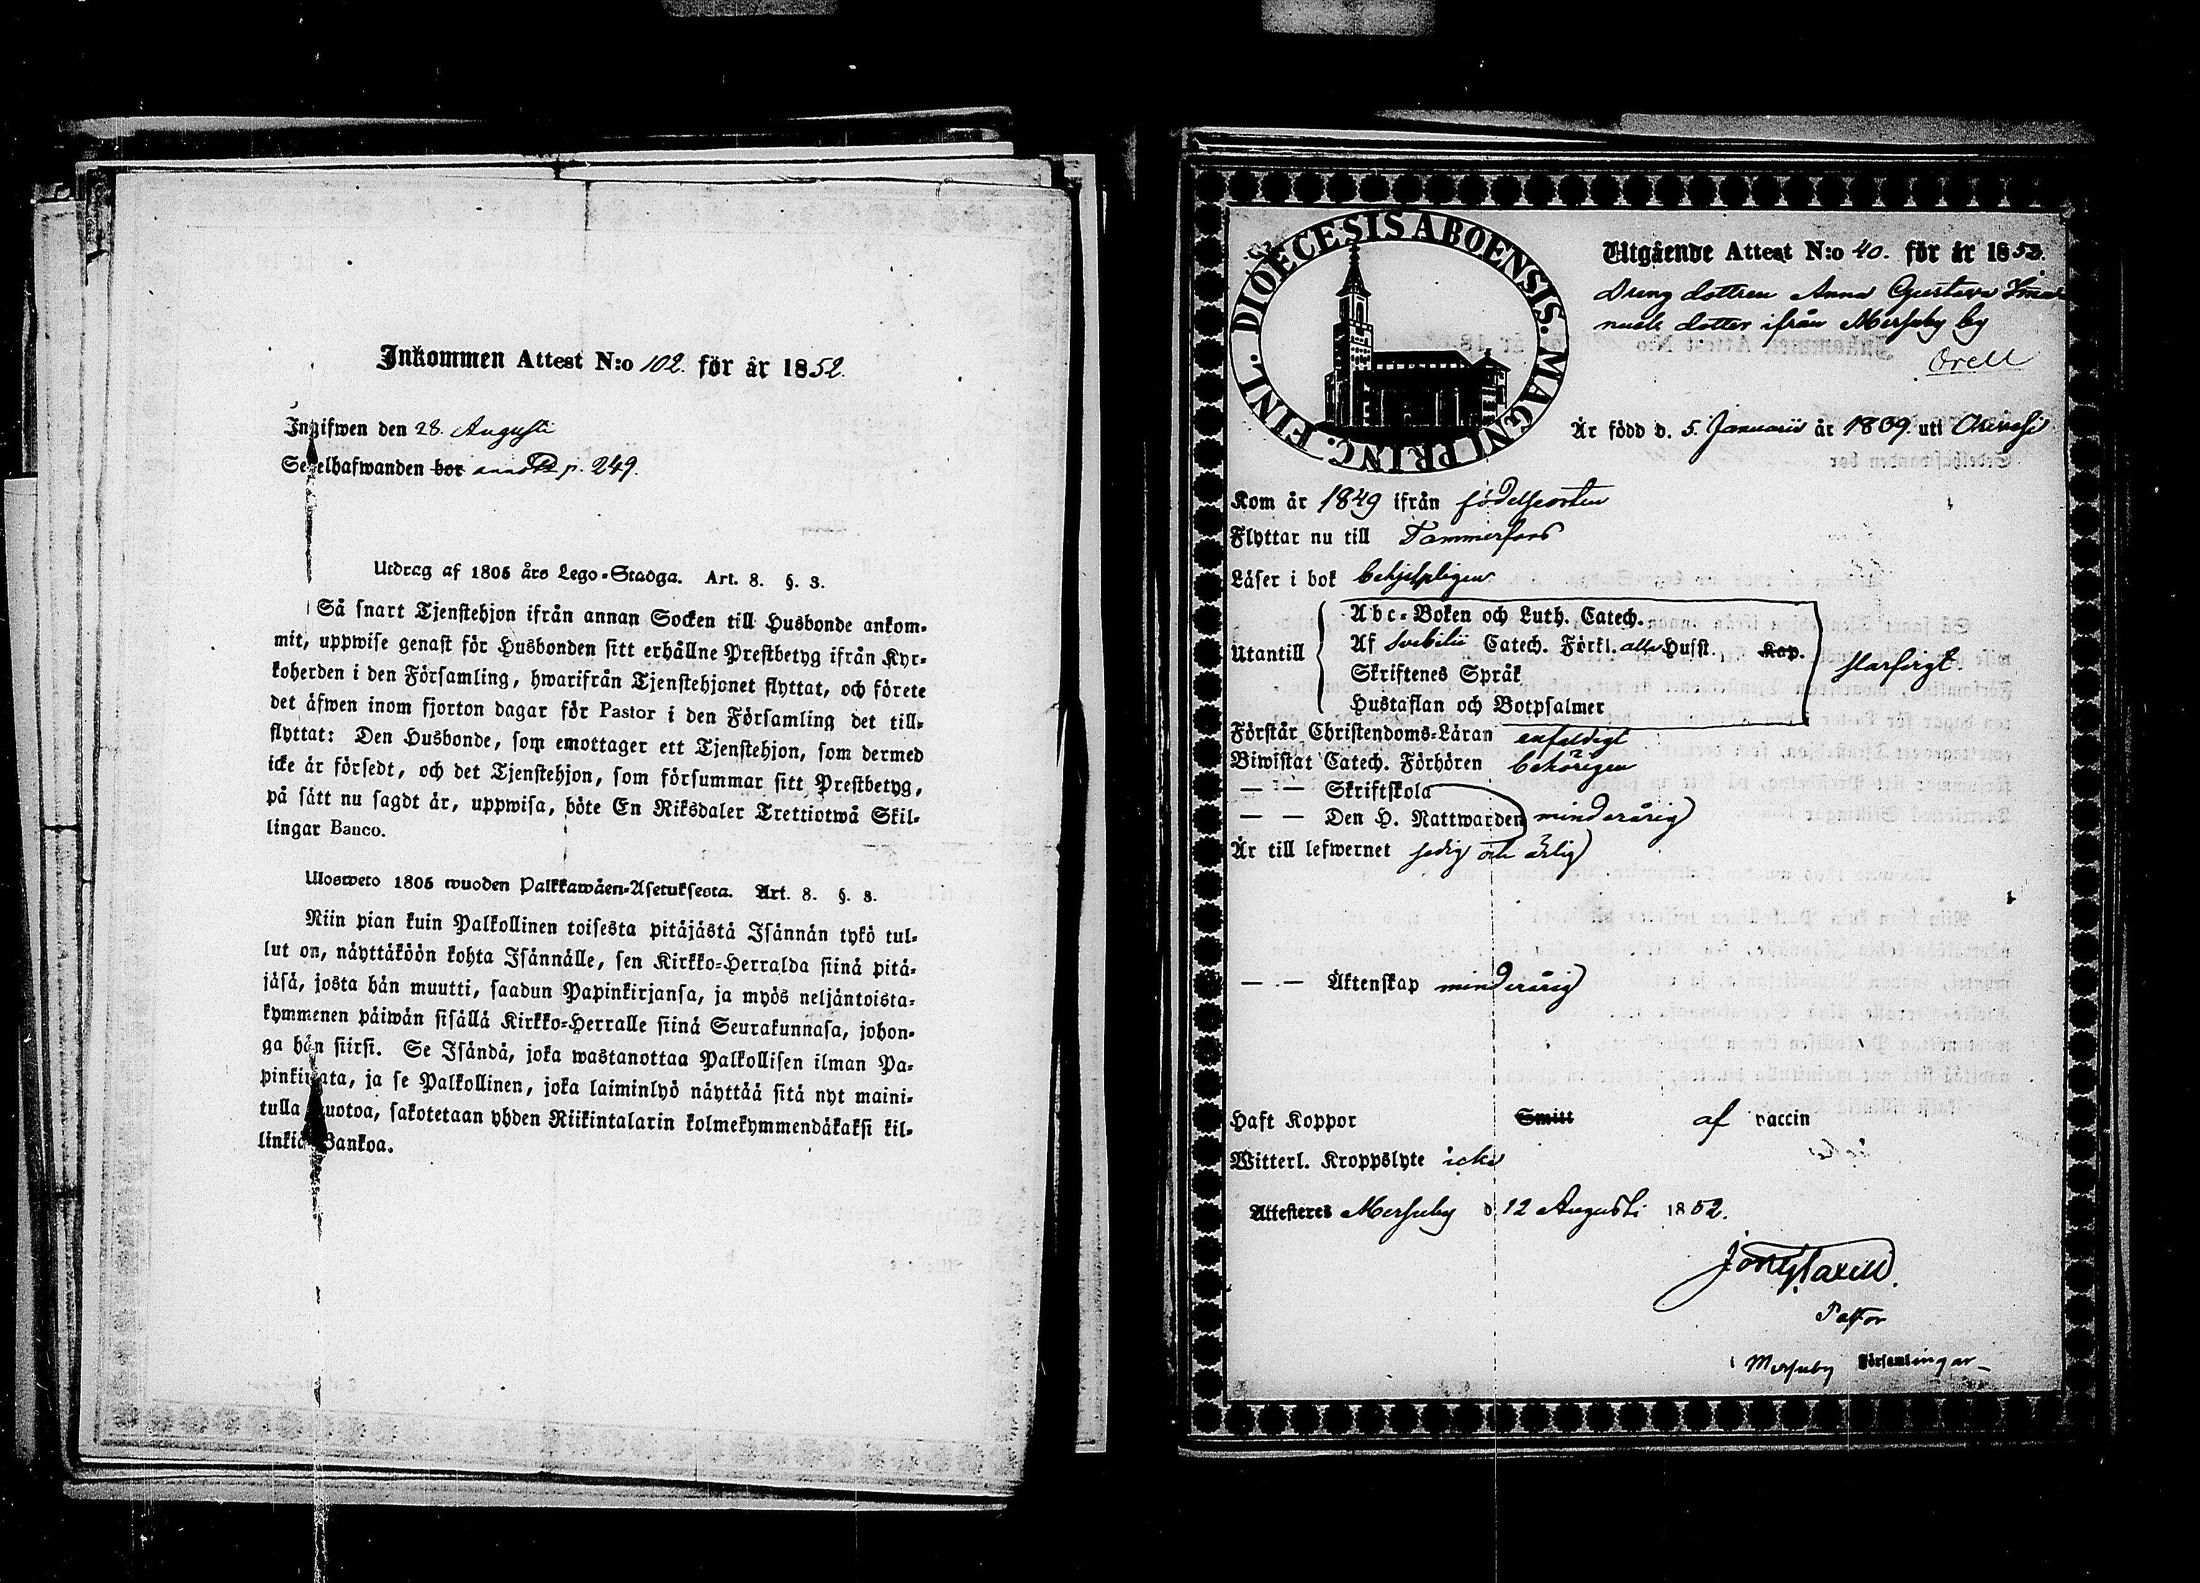 Inkommen Attest N:o 102. för år 1852.
Ingifwen den 28. Augusti
Sedelhafwanden bor p. 249.
Utdrag af 1805 års Lego-Stadga. Art. 8. §. 3.
Så snart Tjenstehjon ifrån annan Socken till Husbonde ankom-
mit, uppwise genast för Husbonden sitt erhållne Prestbetyg ifrån Kyr-
koherden i den Församling, hwarifrån Tjenstehjonet flyttat, och förete
det äfwen inom fjorton dagar för Pastor i den Församling det till-
flyttat: Den Husbonde, som emottager ett Tjenstehjon, som dermed
icke är försedt, och det Tjenstehjon, som försummar sitt Prestbetyg,
på sätt nu sagdt är, uppwisa, böte En Riksdaler Trettiotwå Skil-
lingar Banco.
Ulosweto 1805 wuoden Palkkawäen-Asetuksesta. Art. 8. §. 3.
Niin pian kuin Palkollinen toisesta pitäjästä Isännän tykö tul-
lut on, näyttäköön kohta Isännälle, sen Kirkko-Herralda siinä pitä-
jäsä, josta hän muutti, saadun Papinkirjansa, ja myös neljäntoista-
kymmenen päiwän sisällä Kirkko-Herralle siinä Seurakunnasa, johon-
ga hän siirsi. Se Isändä, joka wastanottaa Palkollisen ilman Pa-
pinkirjata, ja se Palkollinen, joka laiminlyö näyttää sitä nyt maini-
tulla muotoa, sakotetaan yhden Riikintalarin kolmekymmendäkaksi kil-
linkiä Bankoa.
DIOECESIS ABOENSIS. MAGNI PRINC. FINL.
Utgående Attest N:o 40. för år 1852.
Dreng dottren Anna Gustava
dotter ifrån Merjuby by
Orell
Är född d. 5. Januarii år 1839. uti Orivesi
Kom år 1849 ifrån födelseorten
Flyttar nu till Tammerfors
Läser i bok behjelpligen
Utantill
Abc-Boken och Luth. Catech.
Af Svebilii Catech. Förkl. alla Hufst. Kap.
Skriftenes Språk
Hustaflan och Botpsalmer
starfigt
Förstår Christendoms-Läran enfaldigt
Biwistat Catech. Förhören behörigen
— — Skriftskola
— — Den H. Nattwarden minderårig
Är till lefwernet sedig och ärlig
— — Äktenskap minderårig
Haft Koppor Smitt af vaccin
Witterl. Kroppslyte icke
Attesteres Merjuby d. 12 Augusti 1852.
Pastor
i Merjuby Församlingar